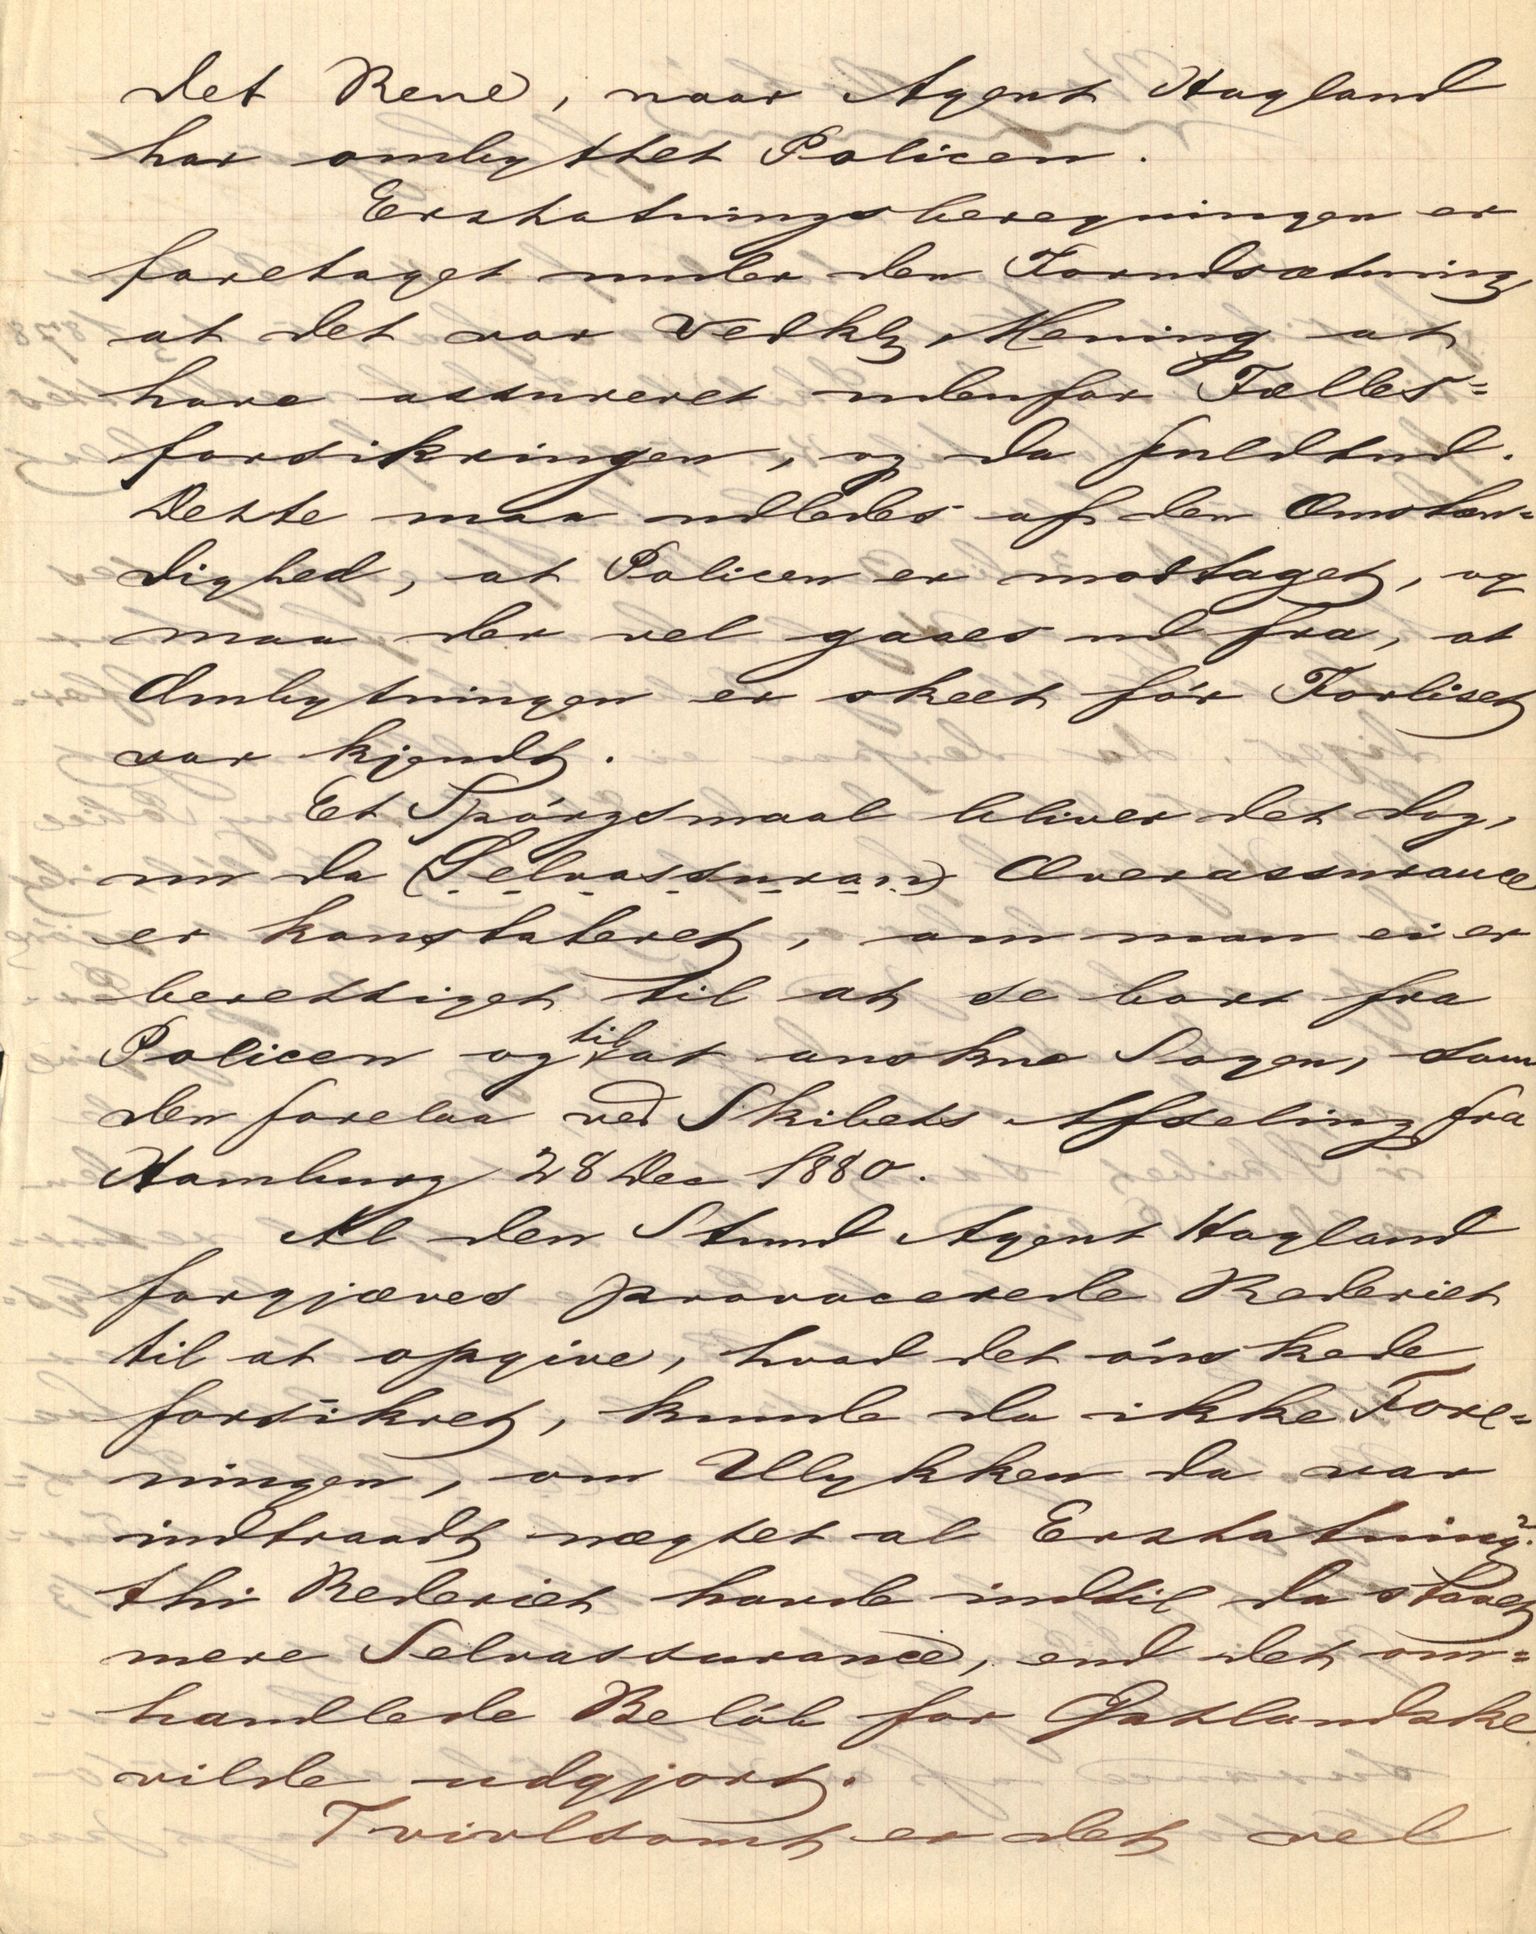 det Rene, naar Agent Hagland
har ombyttet Policen.
Erstatningsberegningen er
foretaget under den Forudsætning
at det var Vedk&shy; Mening at
have assureret udenfor Fælles=
forsikringen, og da fuldtud.
Dette maa udledes af den Omstæn=
dighed, at Policen er modtaget, og
maa der vel gaaes ud fra, at
Ombytningen er skeet før Forliset
var kjendt.
Et Spörgsmaal bliver det dog,
nu da (Selvassuran) Overassurance
er konstateret, om man ei er
berettiget til at se bort fra
Policen og til at anskue Sagen, som
den forelaa ved Skibets Afseling fra
Hamburg 28 Dec 1880.
Al den Stund Agent Hagland
forgjæves provocerede Rederiet
til at opgive, hvad det önskede
forsikret, kunde da ikke Fore=
ningen, om Ulykken da var
indtraadt nægtet al Erstatning?
thi Rederiet havde indtil da staaet
mere Selvassurance, end det om=
handlede Belöb for Østlandske
vilde udgjort.
Tvivlsomt er det vel